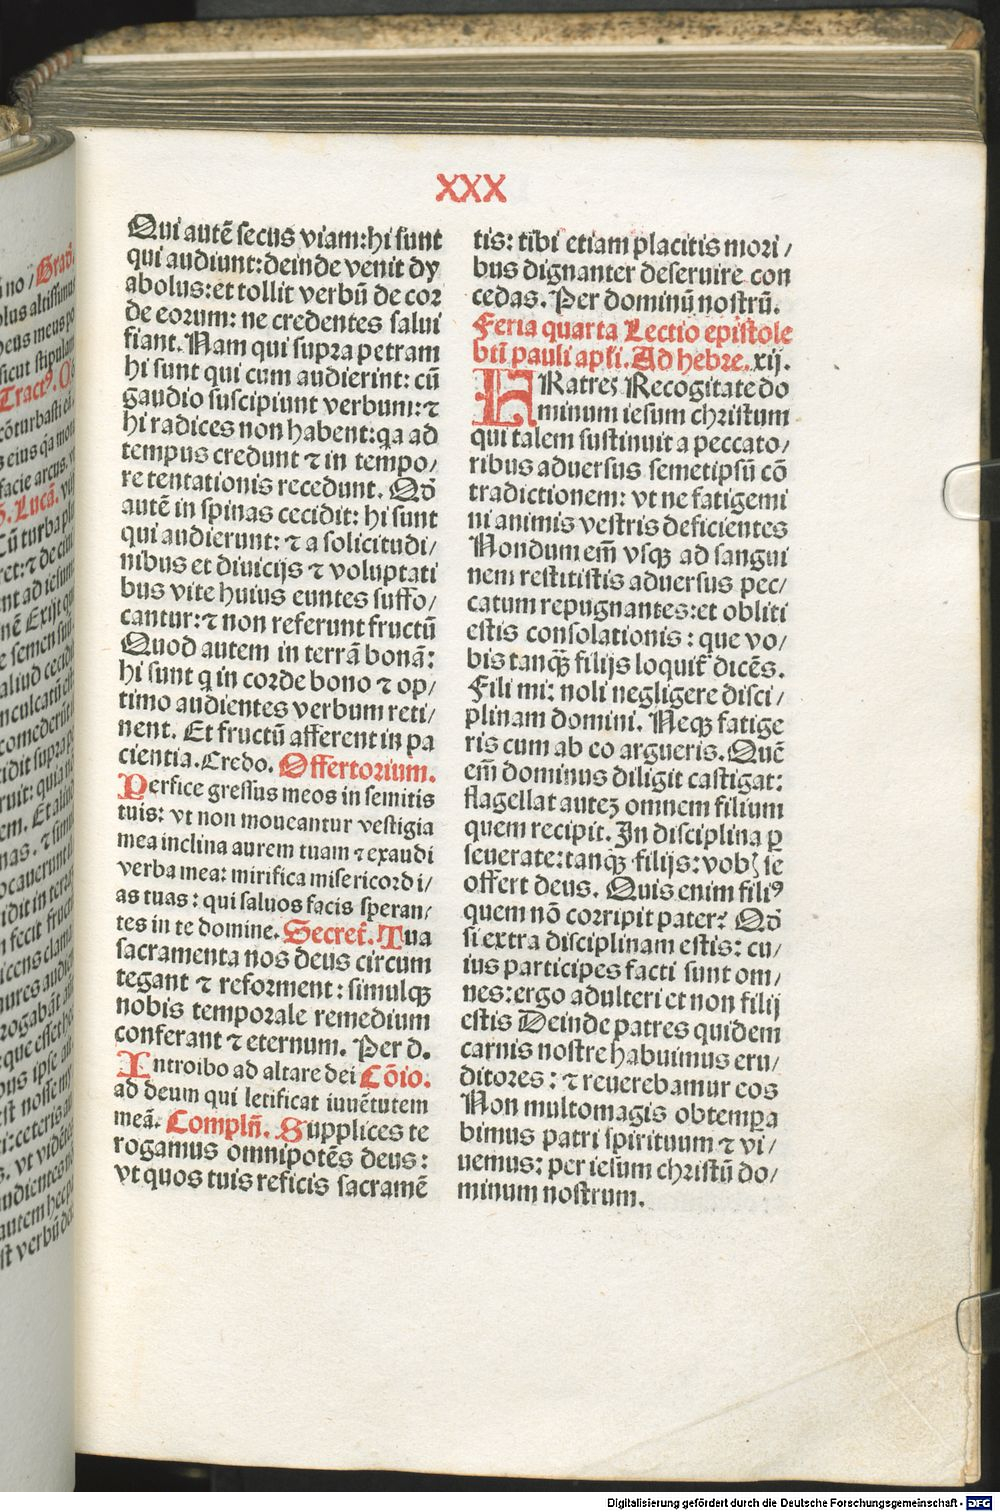 XXX
Qui autē secus viam: hi sunt
qui audiunt: deinde venit dy
abolus: et tollit verbū de cor
de eorum: ne credentes salui
fiant. Nam qui supra petram
hi sunt qui cum audierint: cū
gaudio suscipiunt verbum: ⁊
hi radices non habent: qa ad
tempus credunt ⁊ in tempo/
re tentationis recedunt. Qd̄
autē in spinas cecidit: hi sunt
qui audierunt: ⁊ a solicitudi/
nibus et diuicijs ⁊ voluptati
bus vite huius euntes suffo/
cantur: ⁊ non referunt fructū
Quod autem in terrā bonā:
hi sunt q in corde bono ⁊ op/
timo audientes verbum reti/
nent. Et fructū afferent in pa
cientia. Credo. Offertorium.
Perfice gressus meos in semitis
tuis: vt non moueantur vestigia
mea inclina aurem tuam ⁊ exaudi
verba mea: mirifica misericordi/
as tuas: qui saluos facis speran/
tes in te domine. Secret̄. Tua
sacramenta nos deus circum
tegant ⁊ reforment: simulqꝫ
nobis temporale remedium
conferant ⁊ eternum. Per d.
Introibo ad altare dei Cōio.
ad deum qui letificat iuuētutem
meā. Compln̄. Supplices te
rogamus omnipotēs deus:
vt quos tuis reficis sacramē
tis: tibi etiam placitis mori/
bus dignanter deseruire con
cedas. Per dominū nostrū.
Feria quarta Lectio epistole
btī pauli apl̄i. Ad hebre. xij.
FRatres Recogitate do
minum iesum christum
qui talem sustinuit a peccato/
ribus aduersus semetipsū cō
tradictionem: vt ne fatigemi
ni animis vestris deficientes
Nondum em̄ vsqꝫ ad sangui
nem restitistis aduersus pec/
catum repugnantes: et obliti
estis consolationis: que vo/
bis tanqꝫ̄ filijs loquit̄ dicēs.
Fili mi: noli negligere disci/
plinam domini. Neqꝫ fatige
ris cum ab eo argueris. Quē
em̄ dominus diligit castigat:
flagellat auteꝫ omnem filium
quem recipit. In disciplina ꝑ
seuerate: tanqꝫ̄ filijs: vob̄ se
offert deus. Quis enim filiꝰ
quem nō corripit pater? Qd̄
si extra disciplinam estis: cu/
ius participes facti sunt om/
nes: ergo adulteri et non filij
estis Deinde patres quidem
carnis nostre habuimus eru/
ditores: ⁊ reuerebamur eos
Non multomagis obtempa
bimus patri spirituum ⁊ vi/
uemus: per iesum christū do/
minum nostrum.
Digitalisierung gefördert durch die Deutsche Forschungsgemeinschaft - DFG